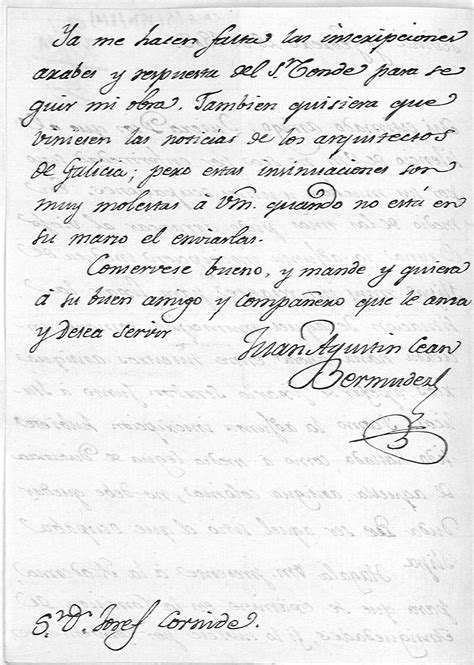 Ya me hacen falta las inscripciones
arabes y respuesta del S.r Conde para se
guir mi obra. Tambien quisiera que
viniesen las noticias de los arquitectos
de Galicia; pero estas insinuaciones son
muy molestas á Vm. quando no está en
su mano el enviarlas.
Conservese bueno, y mande y quiera
á su buen amigo y compañero que le ama
y desea servir
Juan Agustin Cean
Bermudez
S.r D.n Josef Cornide.